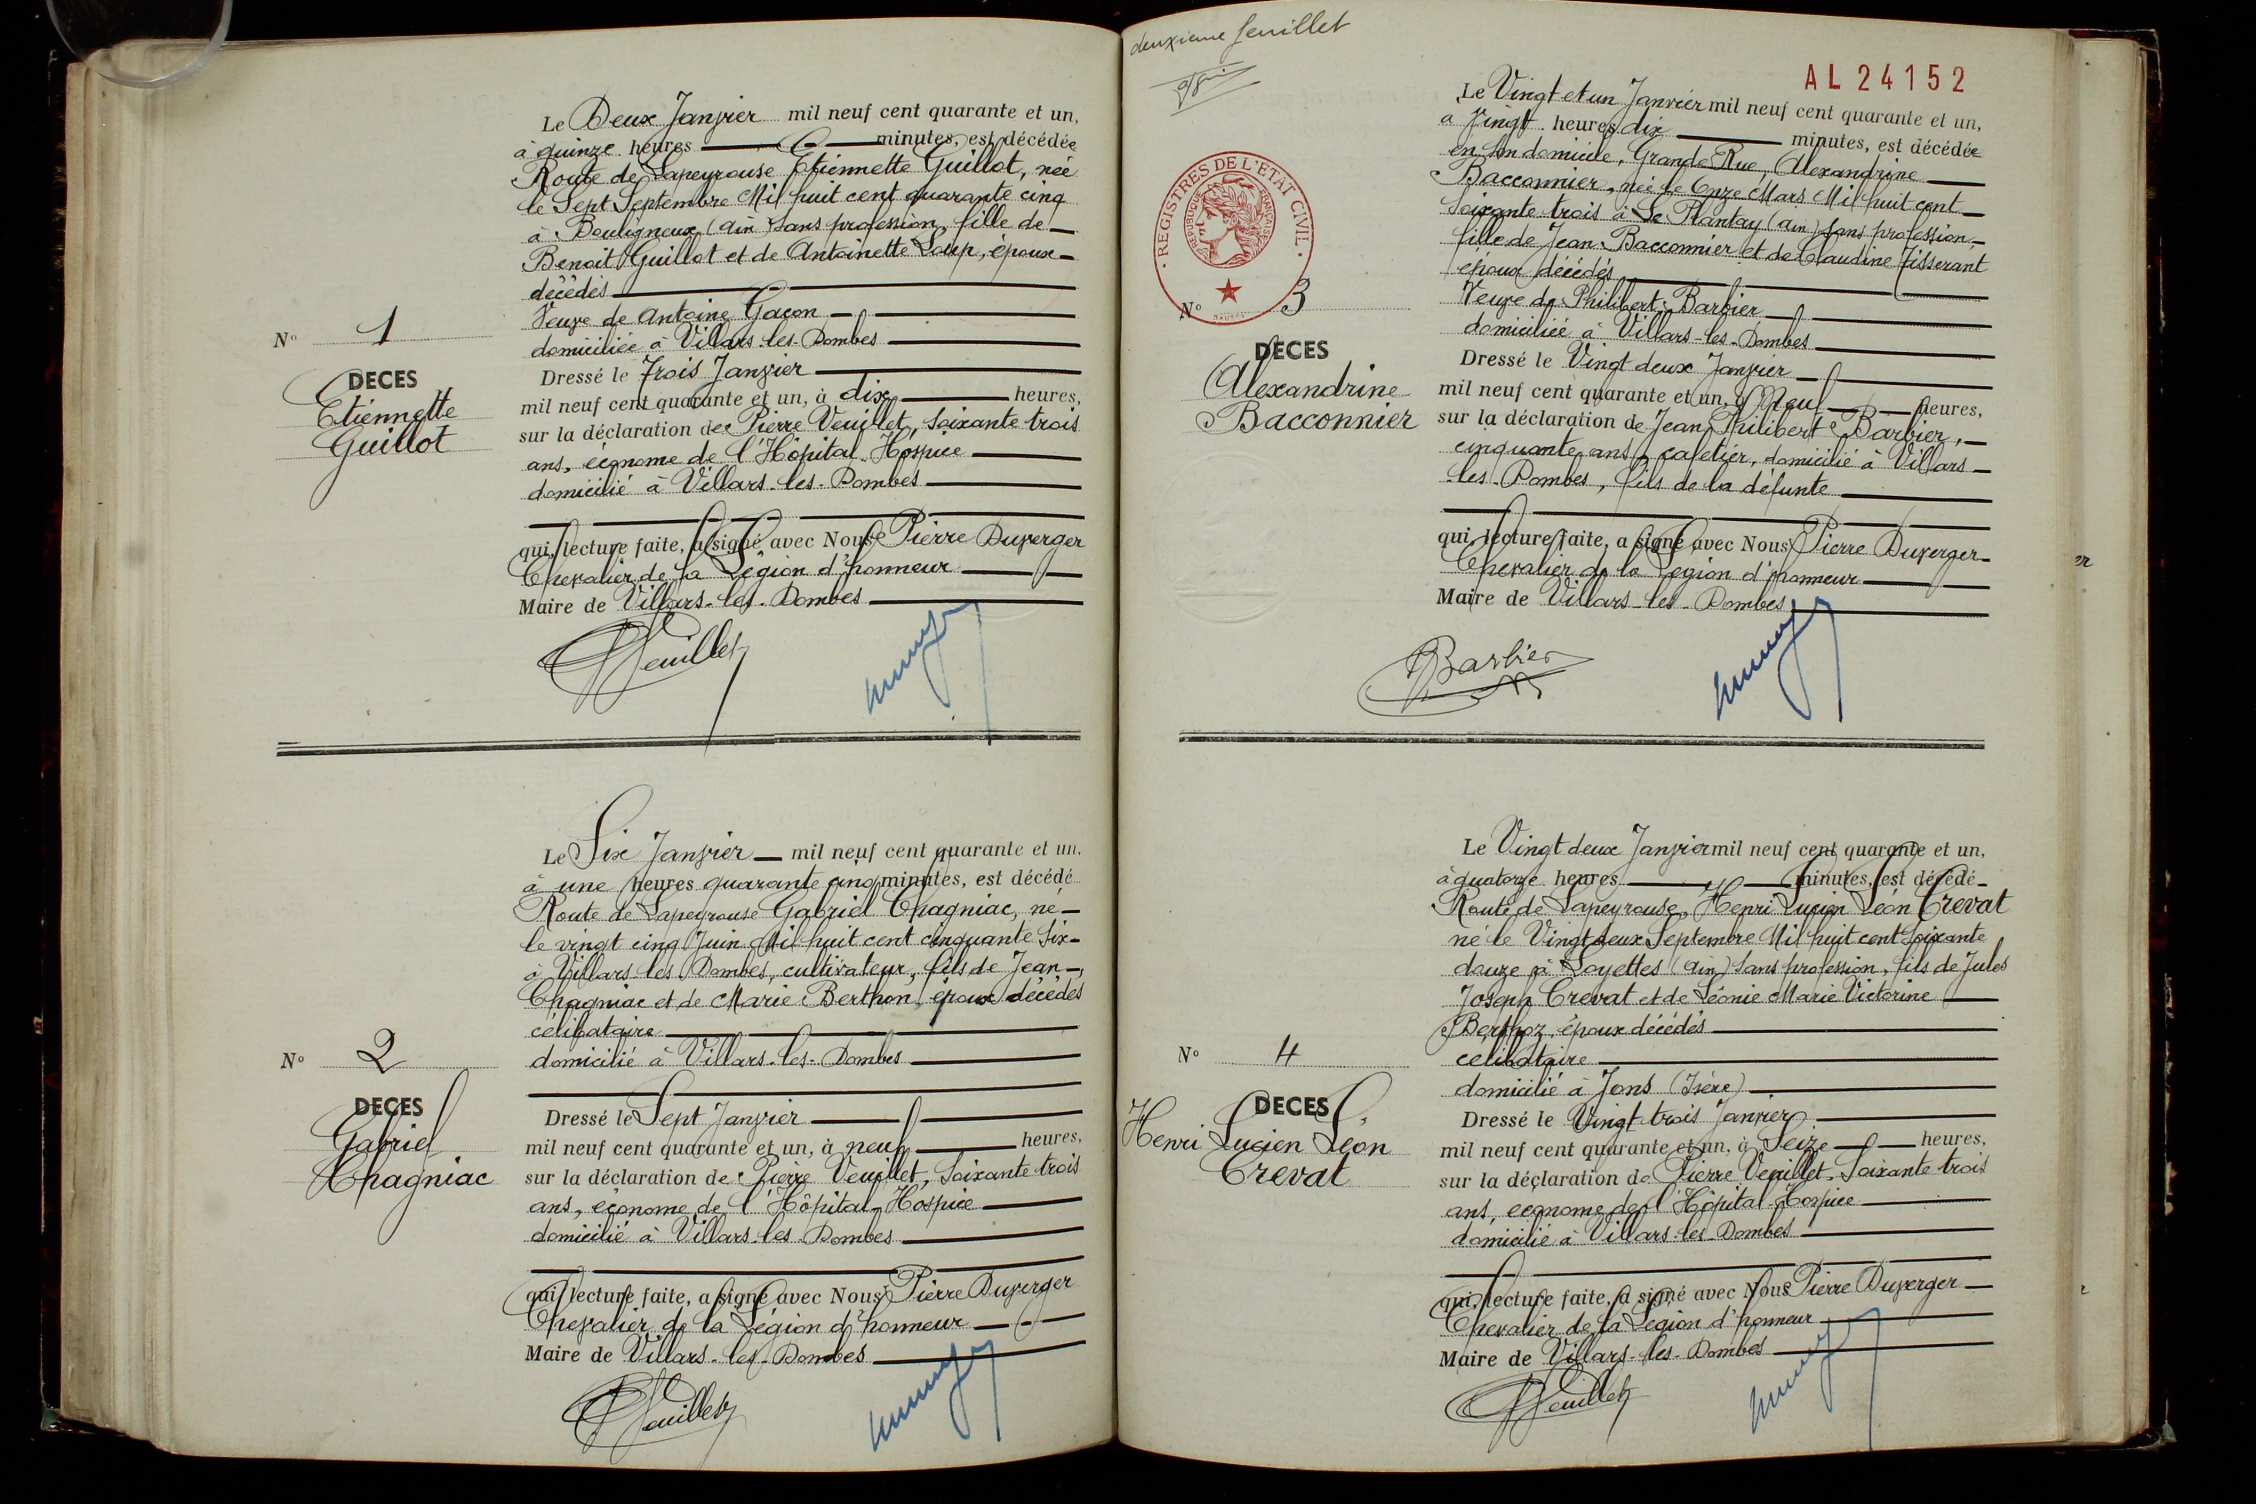 Le Deux Janvier mil neuf cent quarante et un,
à quinze heures minutes, est décédée
Route de Lapeyrouse Etiennette Guillot, née
le Sept Septembre Mil huit cent quarante cinq
à Bouligneux (Ain) sans profession, fille de
Benoit Guillot et de Antoinette Loup, époux
décédés
Veuve de Antoine Gacon
domiciliée à Villars-les-Dombes
Dressé le Trois Janvier
mil neuf cent quarante et un, à dix heures,
sur la déclaration de Pierre Veuillet, soixante trois
ans, économe de l'Hôpital-Hospice
domicilié à Villars-les-Dombes
qui, lecture faite, a signé avec Nous Pierre Duverger
Chevalier de la Légion d'honneur
Maire de Villars-les-Dombes
Veuillet
N° 1
DECES
Etiennette
Guillot
Le Six Janvier mil neuf cent quarante et un,
à une heures quarante cinq minutes, est décédé
Route de Lapeyrouse Gabriel Chagniac, né
le vingt cinq Juin Mil huit cent cinquante six
à Villars les Dombes, cultivateur, fils de Jean
Chagniac et de Marie Berthon, époux décédés
célibataire
domicilié à Villars-les-Dombes
Dressé le Sept Janvier
mil neuf cent quarante et un, à neuf heures,
sur la déclaration de Pierre Veuillet, soixante trois
ans, économe de l'Hôpital-Hospice
domicilié à Villars-les-Dombes
qui, lecture faite, a signé avec Nous Pierre Duverger
Chevalier de la Légion d'honneur
Maire de Villars-les-Dombes
Veuillet
N° 2
DECES
Gabriel
Chagniac
deuxième feuillet
AL 24152
REGISTRES DE L'ETAT CIVIL
REPUBLIQUE FRANÇAISE
Le Vingt et un Janvier mil neuf cent quarante et un,
à Vingt heures dix minutes, est décédée
en son domicile, Grande Rue, Alexandrine
Bacconnier, née le Onze Mars Mil huit cent
soixante trois à Le Plantay (Ain) sans profession
fille de Jean Bacconnier et de Claudine Tisserant
époux décédés
Veuve de Philibert Barbier
domiciliée à Villars-les-Dombes
Dressé le Vingt deux Janvier
mil neuf cent quarante et un, à Neuf heures,
sur la déclaration de Jean Philibert Barbier,
cinquante ans, cafetier, domicilié à Villars
les Dombes, fils de la défunte
qui, lecture faite, a signé avec Nous Pierre Duverger
Chevalier de la Légion d'honneur
Maire de Villars-les-Dombes
Barbier
N° 3
DECES
Alexandrine
Bacconnier
Le Vingt deux Janvier mil neuf cent quarante et un,
à quatorze heures minutes, est décédé
Route de Lapeyrouse, Henri Lucien Léon Crevat
né le Vingt deux Septembre Mil huit cent soixante
douze à Loyettes (Ain) sans profession, fils de Jules
Joseph Crevat et de Léonie Marie Victorine
Berthoz, époux décédés
celibataire
domicilié à Jons (Isère)
Dressé le Vingt trois Janvier
mil neuf cent quarante et un, à Seize heures,
sur la déclaration de Pierre Veuillet, soixante trois
ans, econome de l'Hôpital-Hospice
domicilié à Villars-les-Dombes
qui, lecture faite, a signé avec Nous Pierre Duverger
Chevalier de la Légion d'honneur
Maire de Villars-les-Dombes
Veuillet
N° 4
DECES
Henri Lucien Léon
Crevat